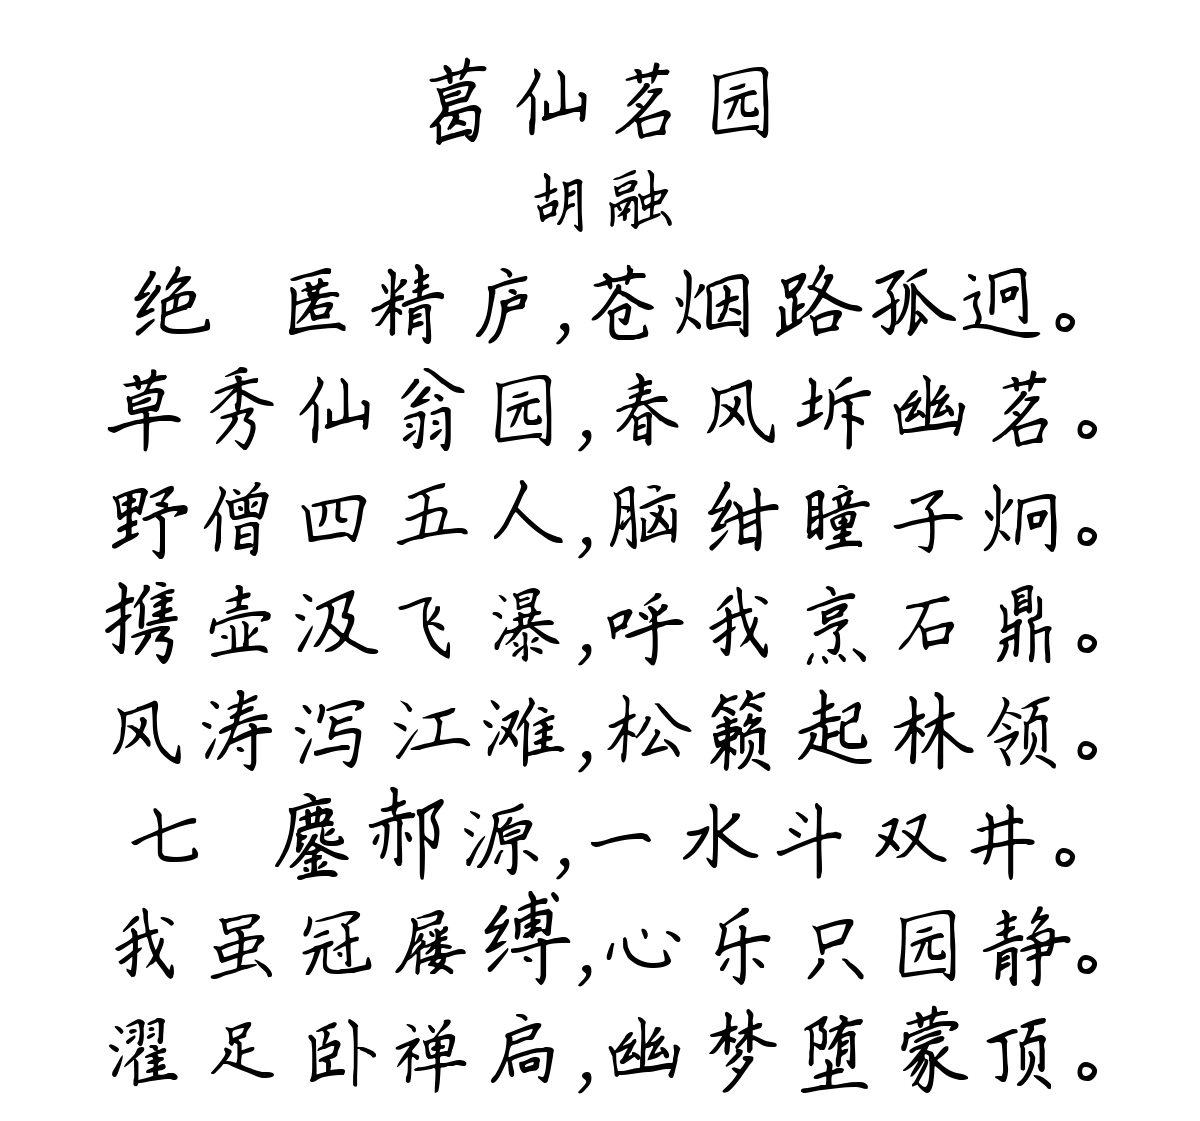 葛仙茗园
胡融
绝 匿精庐,苍烟路孤迥。
草秀仙翁园,春风坼幽茗。
野僧四五人,脑绀瞳子炯。
携壶汲飞瀑,呼我烹石鼎。
风涛泻江滩,松籁起林领。
七 鏖郝源,一水斗双井。
我虽冠屦缚,心乐只园静。
濯足卧禅扃,幽梦堕蒙顶。